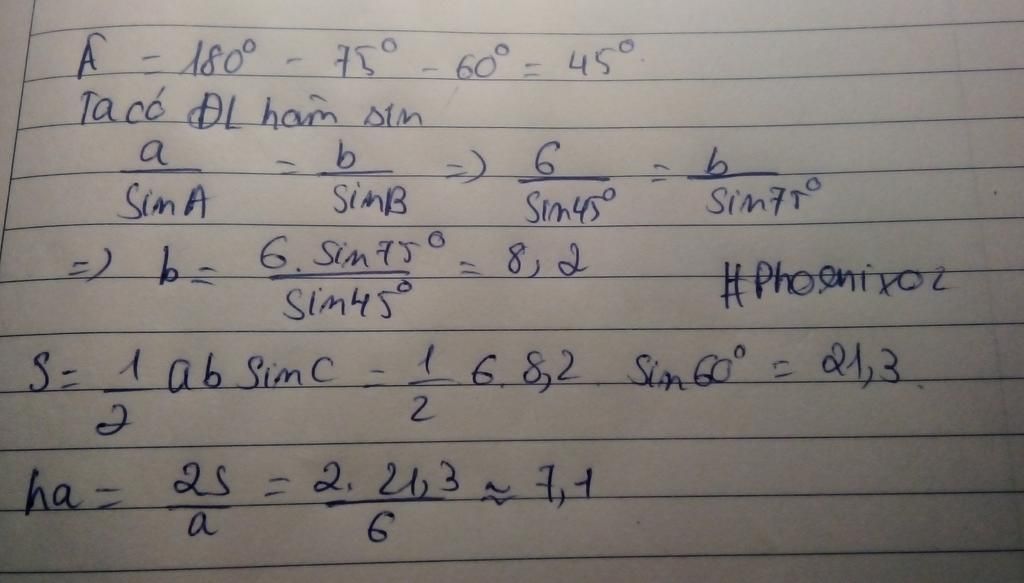 Â = 180° - 75° - 60° = 45°
Ta có ĐL hàm sin
a/SinA = b/SinB => 6/Sin45° = b/Sin75°
=> b = 6.Sin75°/Sin45° = 8,2 #Phoenix02
S = 1/2 ab SinC = 1/2 6.8,2. Sin60° = 21,3.
ha = 2S/a = 2.21,3/6 ≈ 7,1